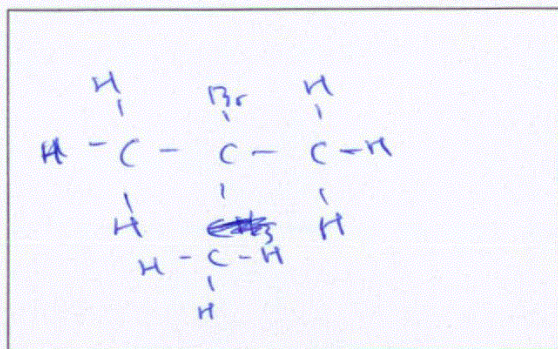 H Br H
H - C - C - C - H
H H
H - C - H
H